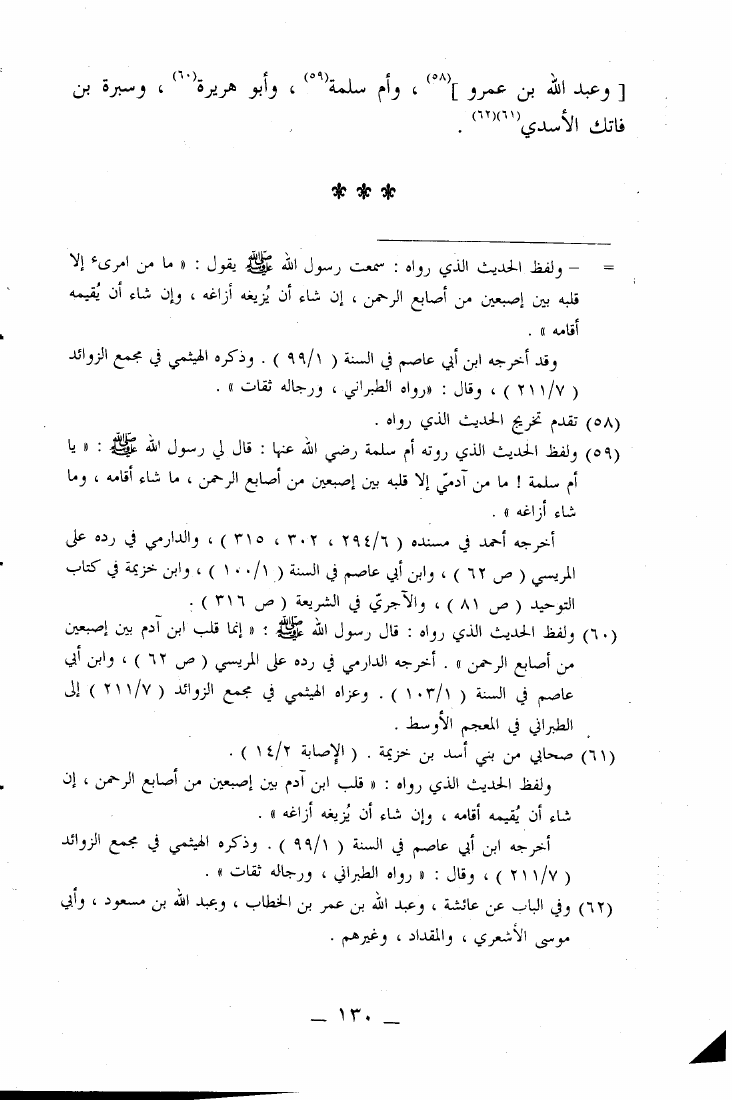 [ وعبد الله بن عمرو ](٥٨) ، وأم سلمة(٥٩) ، وأبو هريرة(٦٠) ، وسبرة بن
فاتك الأسدي(٦١)(٦٢) .
***
= – ولفظ الحديث الذي رواه : سمعت رسول الله ﷺ يقول : « ما من امرىء إلا
قلبه بين إصبعين من أصابع الرحمن ، إن شاء أن يُزيغه أزاغه ، وإن شاء أن يُقيمه
أقامه » .
وقد أخرجه ابن أبي عاصم في السنة ( ٩٩/١ ) . وذكره الهيثمي في مجمع الزوائد
( ٢١١/٧ ) ، وقال : «رواه الطبراني ، ورجاله ثقات » .
(٥٨) تقدم تخريج الحديث الذي رواه .
(٥٩) ولفظ الحديث الذي روته أم سلمة رضي الله عنها : قال لي رسول الله ﷺ : « يا
أم سلمة ! ما من آدميّ إلا قلبه بين إصبعين من أصابع الرحمن ، ما شاء أقامه ، وما
شاء أزاغه » .
أخرجه أحمد في مسنده ( ٢٩٤/٦ ، ٣٠٢ ، ٣١٥ ) ، والدارمي في رده على
المريسي ( ص ٦٢ ) ، وابن أبي عاصم في السنة ( ١٠٠/١ ) ، وابن خزيمة في كتاب
التوحيد ( ص ٨١ ) ، والآجريّ في الشريعة ( ص ٣١٦ ) .
(٦٠) ولفظ الحديث الذي رواه : قال رسول الله ﷺ : « إنما قلب ابن آدم بين إصبعين
من أصابع الرحمن » . أخرجه الدارمي في رده على المريسي ( ص ٦٢ ) ، وابن أبي
عاصم في السنة ( ١٠٣/١ ) . وعزاه الهيثمي في مجمع الزوائد ( ٢١١/٧ ) إلى
الطبراني في المعجم الأوسط .
(٦١) صحابي من بني أسد بن خزيمة . ( الإصابة ١٤/٢ ) .
ولفظ الحديث الذي رواه : « قلب ابن آدم بين إصبعين من أصابع الرحمن ، إن
شاء أن يُقيمه أقامه ، وإن شاء أن يُزيغه أزاغه » .
أخرجه ابن أبي عاصم في السنة ( ٩٩/١ ) . وذكره الهيثمي في مجمع الزوائد
( ٢١١/٧ ) ، وقال : « رواه الطبراني ، ورجاله ثقات » .
(٦٢) وفي الباب عن عائشة ، وعبد الله بن عمر بن الخطاب ، وعبد الله بن مسعود ، وأبي
موسى الأشعري ، والمقداد ، وغيرهم .
– ١٣٠ –